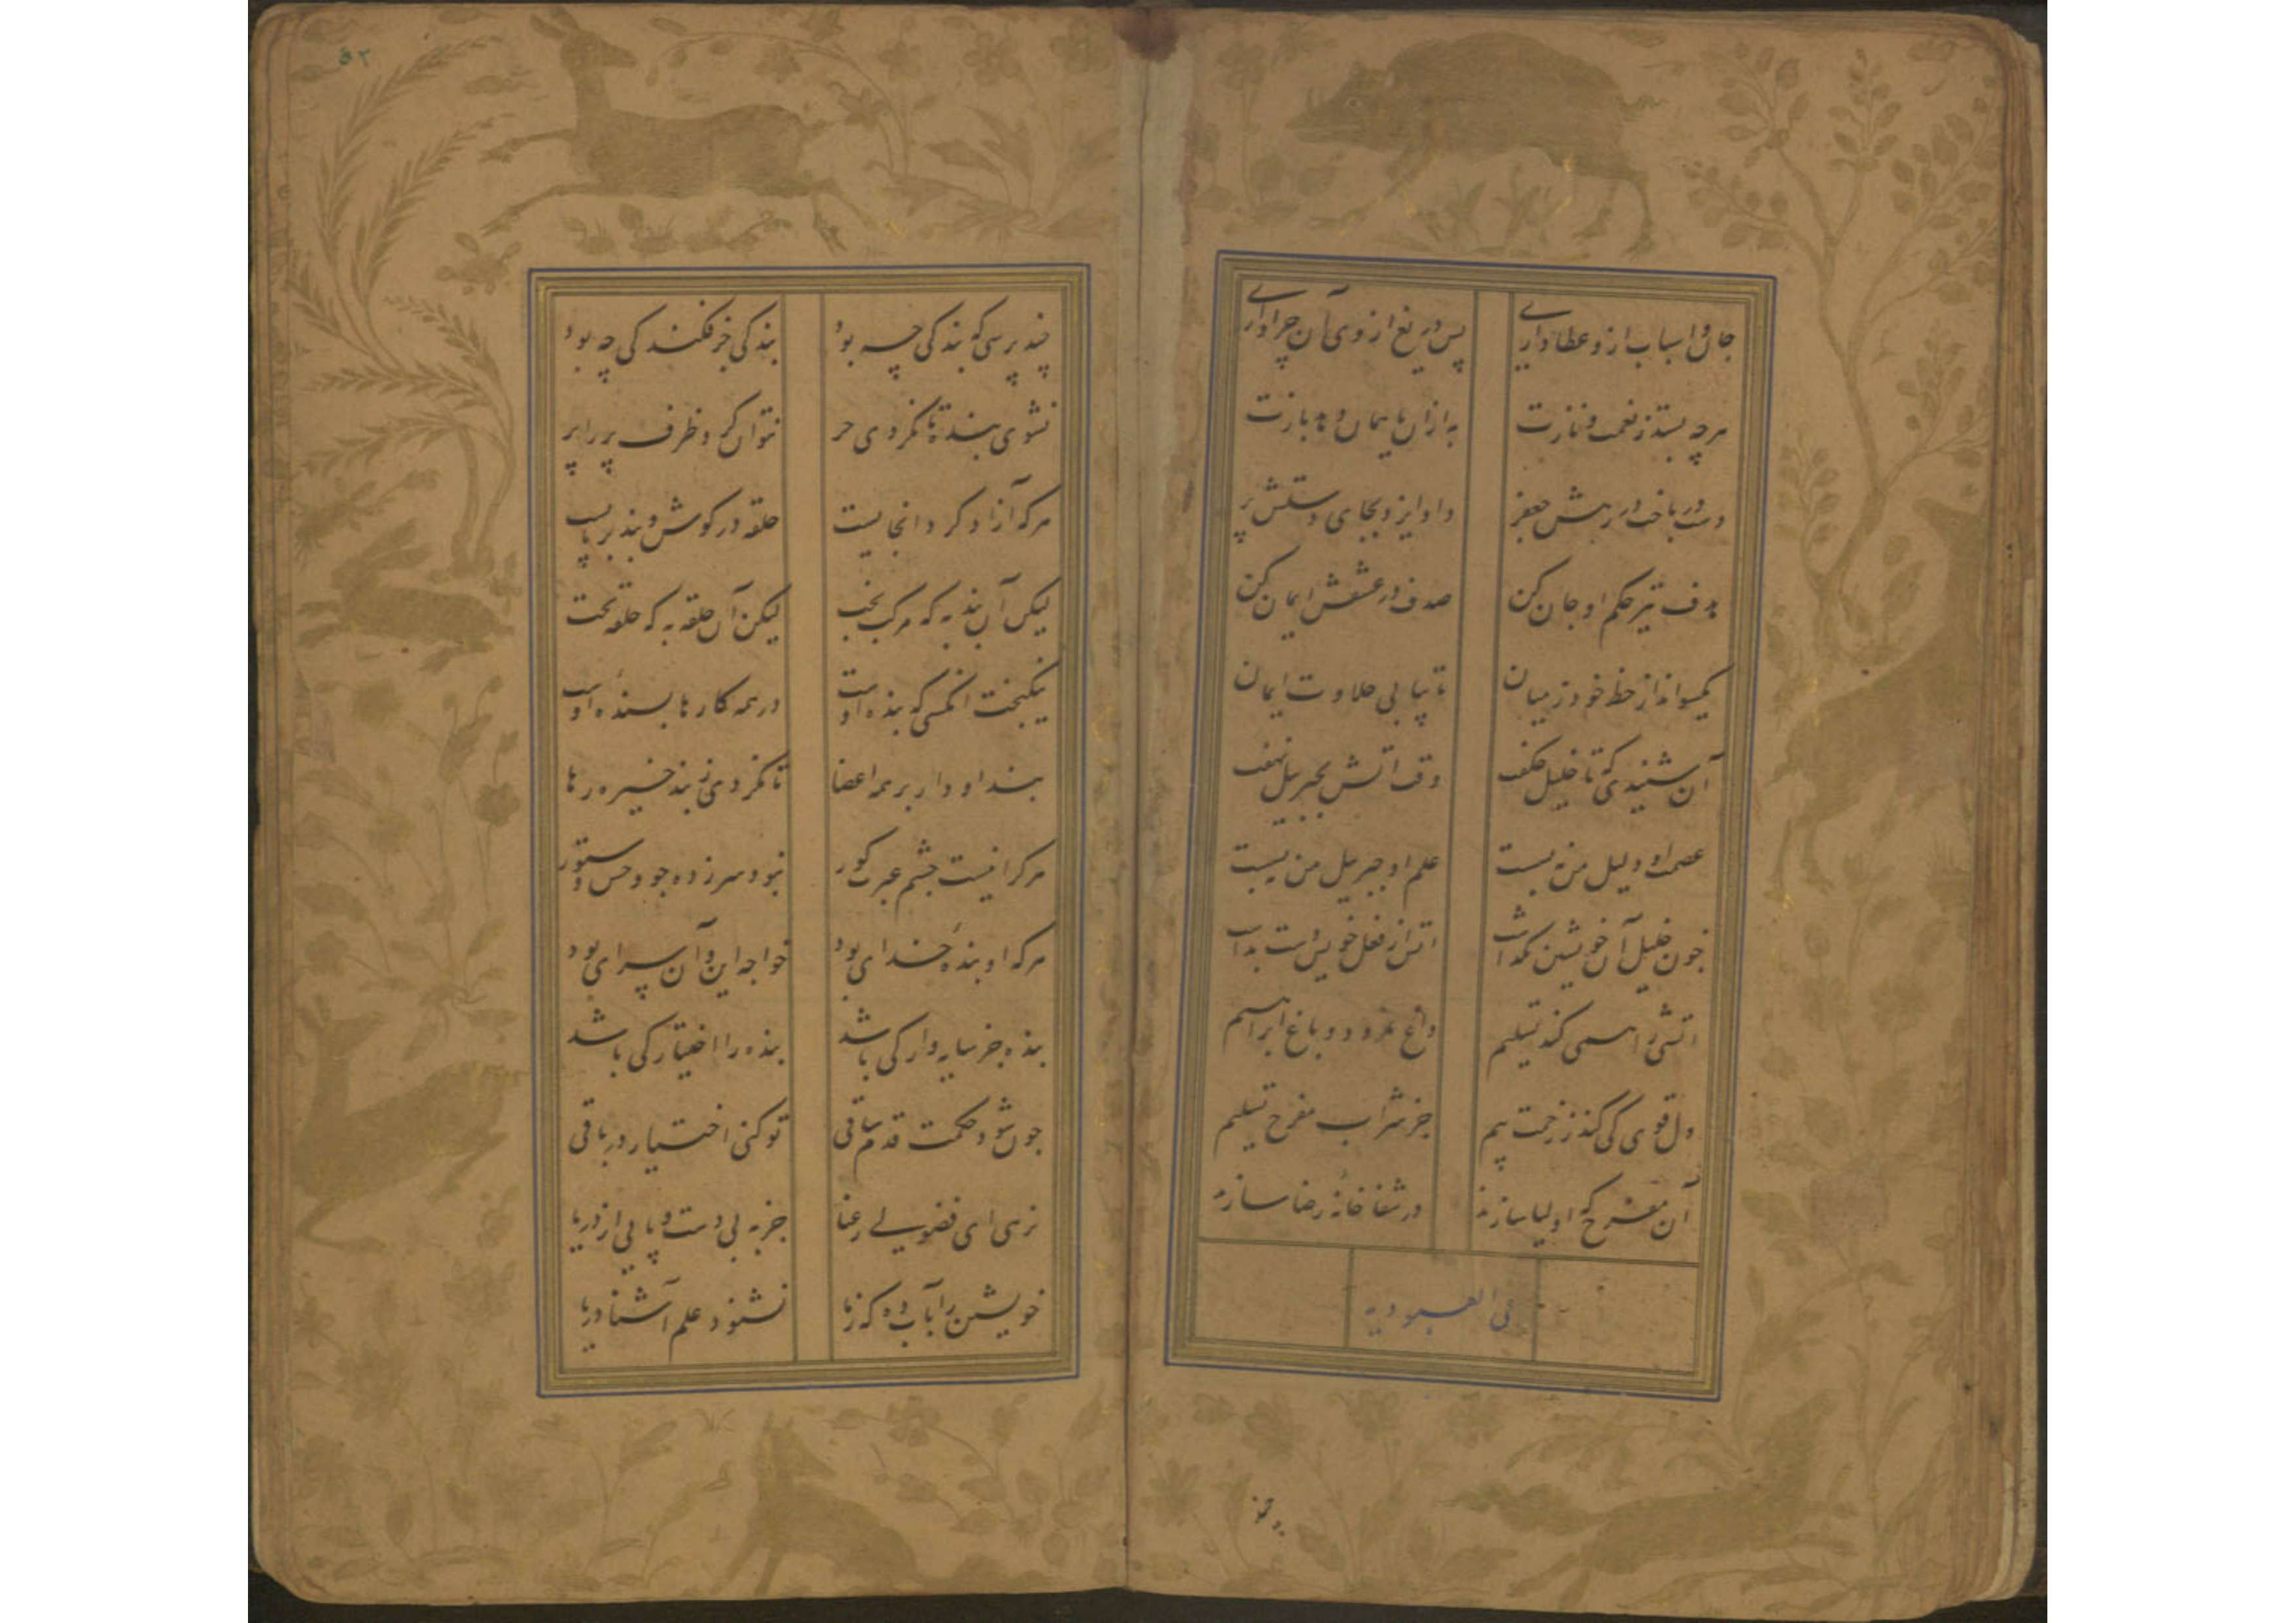 جان و اسباب ازو عطا داری پس دریغ ازوی آن چرا داری
هرچه بستد ز نعمت و نازت به ازان یا همان دهد بازت
دست در باخت در رهش جعفر داد ایزد بجای دستش پر
هدف تیر حکم او جان کن صدف در عشقش ایمان کن
یکسو انداز حظ خود ز میان تا بیابی حلاوت ایمان
آن شنیدی که تا خلیل چکفت وقت اتش بجبرییل نهفت
عصمت او دلیل من نه بست علم او جبرییل من نه بست
چون خلیل آن خویشتن بکذاشت اتش از فعل خویش دست بداشت
اتشی را همی کند تسلیم داغ نمرود و باغ ابراهیم
دل قوی کی کند ز زحمت بیم جز شراب مفرح تسلیم
آن مفرح که اولیا سازند در شفاخانه رضا سازند
فی العبودیه
چند پرسی که بندکی چه بود بندکی جز فکندکی چه بود
نشوی بنده تا نکردی حر نتوان کرد ظرف پر را پر
هرکه آزاد کرد انجایست حلقه در کوش و بند بر پایست
لیکن آن بند به که مرکب بخت لیکن آن حلقه به که حلقه تخت
نیکبخت انکسی که بنده اوست در همه کارها بسنده اوست
بند او دار بر همه اعضا تا نکردی ز بند خیره رها
هرکرا نیست چشم عبرت کور نبود سرزده چو وحش و ستور
هرکه او بنده خدای بود خواجه این و آن سرای بود
بنده جز سایه وار کی باشد بنده را اختیار کی باشد
چون شود حکمت قدم ساقی تو کنی اختیار در باقی
نرهی ای فضولی رعنا جز به بی دست و پایی از دریا
خویشتن را بآب ده که ز ما نشنود علم آشنا دریا